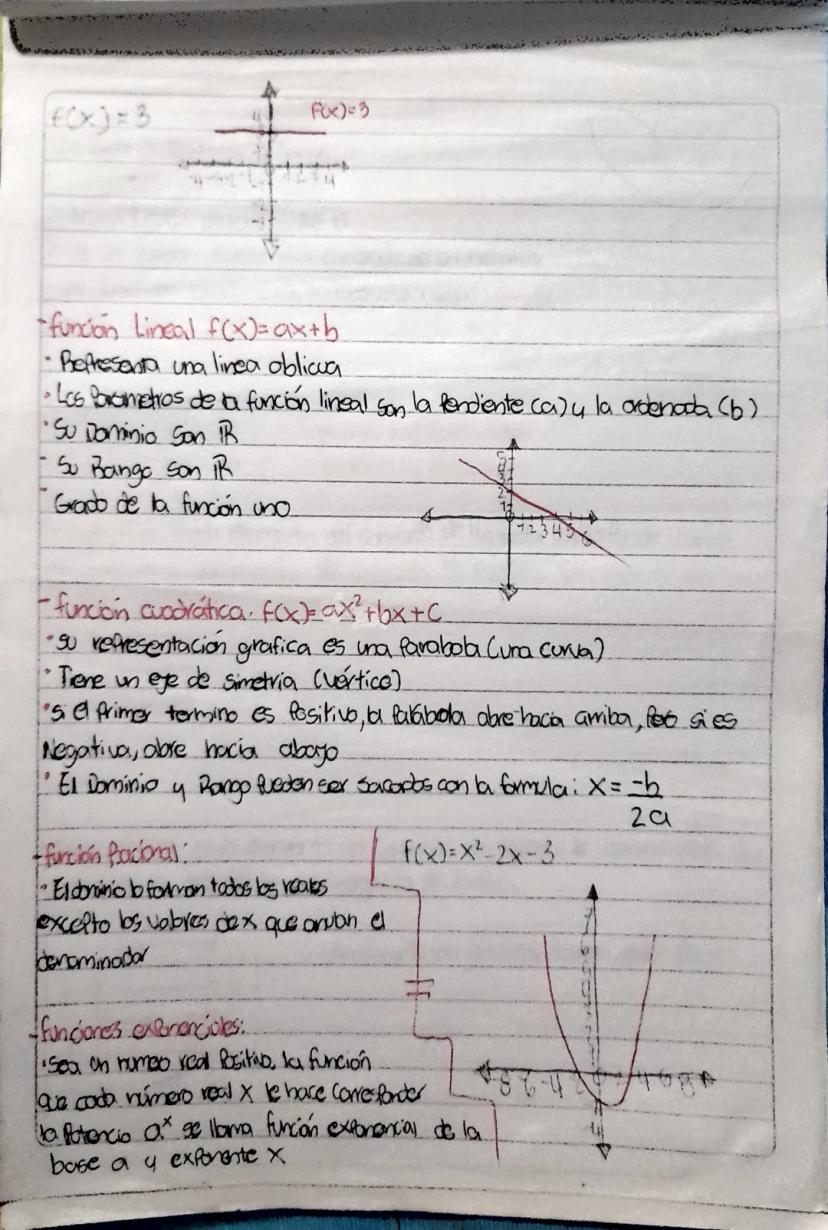 f(x) = 3
f(x)=3
función Lineal f(x)=ax+b
Representa una linea oblicua
Los Parametros de la función lineal son la Pendiente (a) y la ordenada (b)
Su Dominio son ℝ
Su Rango son ℝ
Grado de la función uno
5
4
3
2
1
1 2 3 4 5 6
función cuadrática. f(x)=ax²+bx+c
su representación grafica es una Parabola (una curva)
Tiene un eje de simetria (vértice)
si el Primer termino es Positivo, la Parábola abre hacia arriba, Pero si es
Negativa, abre hacia abajo
El Dominio y Rango Pueden ser sacados con la formula: x = -b
2a
función Racional:
El dominio lo forman todos los reales
excepto los valores de x que anulan el
denominador
f(x)=x²-2x-3
8 6 4 2 4 6 8
funciones exponenciales:
Sea un numeo real Positivo, la función
que cada número real x le hace corresponder
la Potencia aˣ se llama función exponencial de la
base a y exponente x